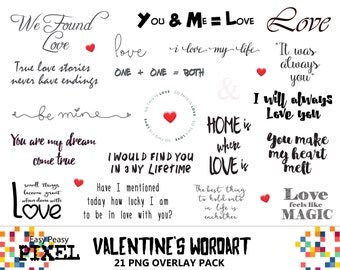 We Found
Love
You & Me = Love
Love
love
i love my life
"It was
always
you"
True love stories
never have endings
ONE + ONE = BOTH
&
be mine
I will always
Love you
HOME is
where
LOVE is
You are my dream
come true
I WOULD FIND YOU
IN ANY LIFETIME
You make
my heart
melt
small things
become great
when done with
LOVE
Have I mentioned
today how lucky I am
to be in love with you?
The best thing
to hold onto
in life is
eachother
Love
feels like
MAGIC
Easy Peasy
PIXEL
VALENTINE'S WORDART
21 PNG OVERLAY PACK